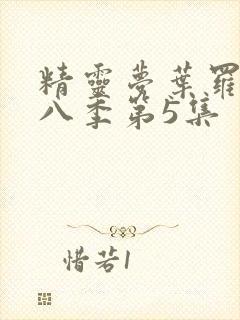 精靈夢葉羅
八季第5集
惜若1